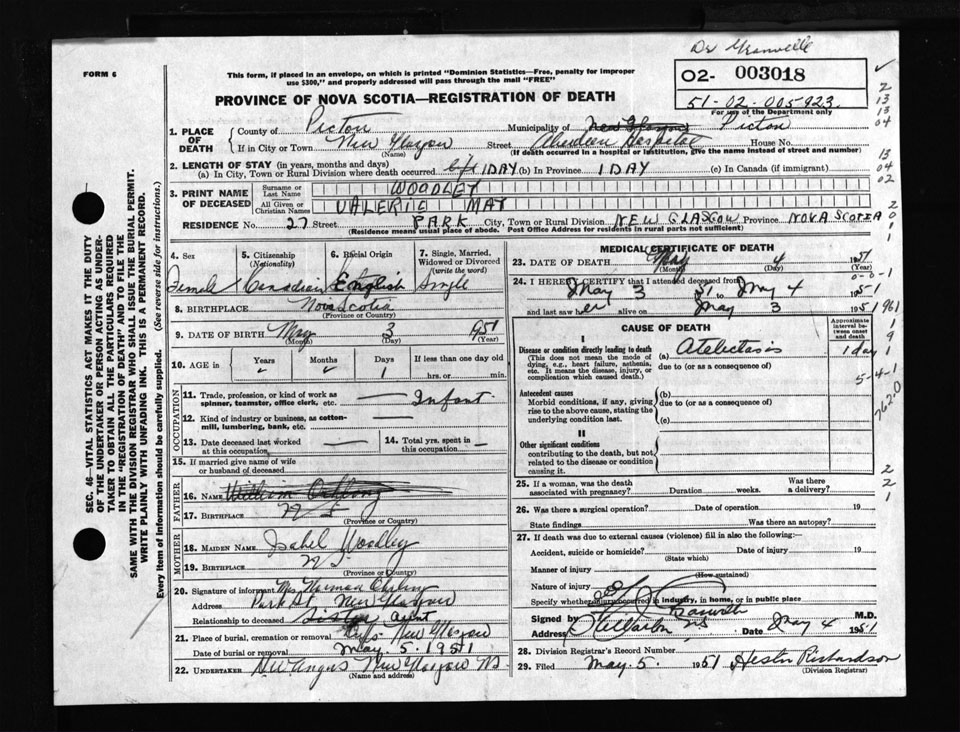 Dr Granville
FORM 6
This form, if placed in an envelope, on which is printed "Dominion Statistics—Free, penalty for improper
use $300," and properly addressed will pass through the mail "FREE"
02- 003018
51-02-005923
For use of the Department only
PROVINCE OF NOVA SCOTIA—REGISTRATION OF DEATH
1. PLACE OF DEATH
County of Pictou Municipality of New Glasgow Pictou
If in City or Town New Glasgow (Name) Street Aberdeen Hospital House No.
(If death occurred in a hospital or institution, give the name instead of street and number)
2. LENGTH OF STAY (in years, months and days)
(a) In City, Town or Rural Division where death occurred 1 DAY (b) In Province 1 DAY (c) In Canada (if immigrant)
3. PRINT NAME OF DECEASED
Surname or Last Name WOODLEY
All Given or Christian Names VALERIE MAY
RESIDENCE No. 27 Street PARK City, Town or Rural Division NEW GLASGOW Province NOVA SCOTIA
(Residence means usual place of abode. Post Office Address for residents in rural parts not sufficient)
4. Sex Female
5. Citizenship (Nationality) Canadian
6. Racial Origin English
7. Single, Married, Widowed or Divorced (write the word) Single
8. BIRTHPLACE Nova Scotia
(Province or Country)
9. DATE OF BIRTH May 3 1951
(Month) (Day) (Year)
10. AGE in Years Months Days 1 If less than one day old hrs. or min.
OCCUPATION
11. Trade, profession, or kind of work as spinner, teamster, office clerk, etc. — Infant
12. Kind of industry or business, as cotton-mill, lumbering, bank, etc.
13. Date deceased last worked at this occupation —
14. Total yrs. spent in this occupation —
15. If married give name of wife or husband of deceased
FATHER
16. NAME William
17. BIRTHPLACE N S
(Province or Country)
MOTHER
18. MAIDEN NAME Isabel Woodley
19. BIRTHPLACE N S
(Province or Country)
20. Signature of informant Mrs Norman
Address Park St. New Glasgow
Relationship to deceased Sister aunt
21. Place of burial, cremation or removal New Glasgow
Date of burial or removal May. 5. 1951
22. UNDERTAKER D.W. Angus New Glasgow NS
(Name and address)
MEDICAL CERTIFICATE OF DEATH
23. DATE OF DEATH May 4 1951
(Month) (Day) (Year)
24. I HEREBY CERTIFY that I attended deceased from
May 3 51 to May 4 1951
and last saw her alive on May 3 1951
CAUSE OF DEATH
Approximate interval between onset and death
I
Disease or condition directly leading to death (a) Atelectasis 1 day
(This does not mean the mode of dying, e.g., heart failure, asthenia, etc. It means the disease, injury, or complication which caused death.)
due to (or as a consequence of)
Antecedent causes
Morbid conditions, if any, giving rise to the above cause, stating the underlying condition last.
(b)
due to (or as a consequence of)
(c)
II
Other significant conditions
contributing to the death, but not related to the disease or condition causing it.
25. If a woman, was the death associated with pregnancy? Duration weeks. Was there a delivery?
26. Was there a surgical operation? Date of operation 19
State findings Was there an autopsy?
27. If death was due to external causes (violence) fill in also the following:
Accident, suicide or homicide? (State which) Date of injury 19
Manner of injury
(How sustained)
Nature of injury
Specify whether injury occurred in industry, in home, or in public place
Signed by Granville M.D.
Address Stellarton NS Date May 4 1951
28. Division Registrar's Record Number
29. Filed May. 5. 1951 Hester Richardson
(Division Registrar)
SEC. 46—VITAL STATISTICS ACT MAKES IT THE DUTY
OF THE UNDERTAKER OR PERSON ACTING AS UNDER-
TAKER TO OBTAIN ALL THE PARTICULARS REQUIRED
IN THE "REGISTRATION OF DEATH" AND TO FILE THE
SAME WITH THE DIVISION REGISTRAR WHO SHALL ISSUE THE BURIAL PERMIT.
WRITE PLAINLY WITH UNFADING INK. THIS IS A PERMANENT RECORD.
Every item of information should be carefully supplied. (See reverse side for instructions.)
2
13
13
04
13
04
02
2
0
1
1
0-0-1
961
1
9
1
5-4-1
7620
2
2
1